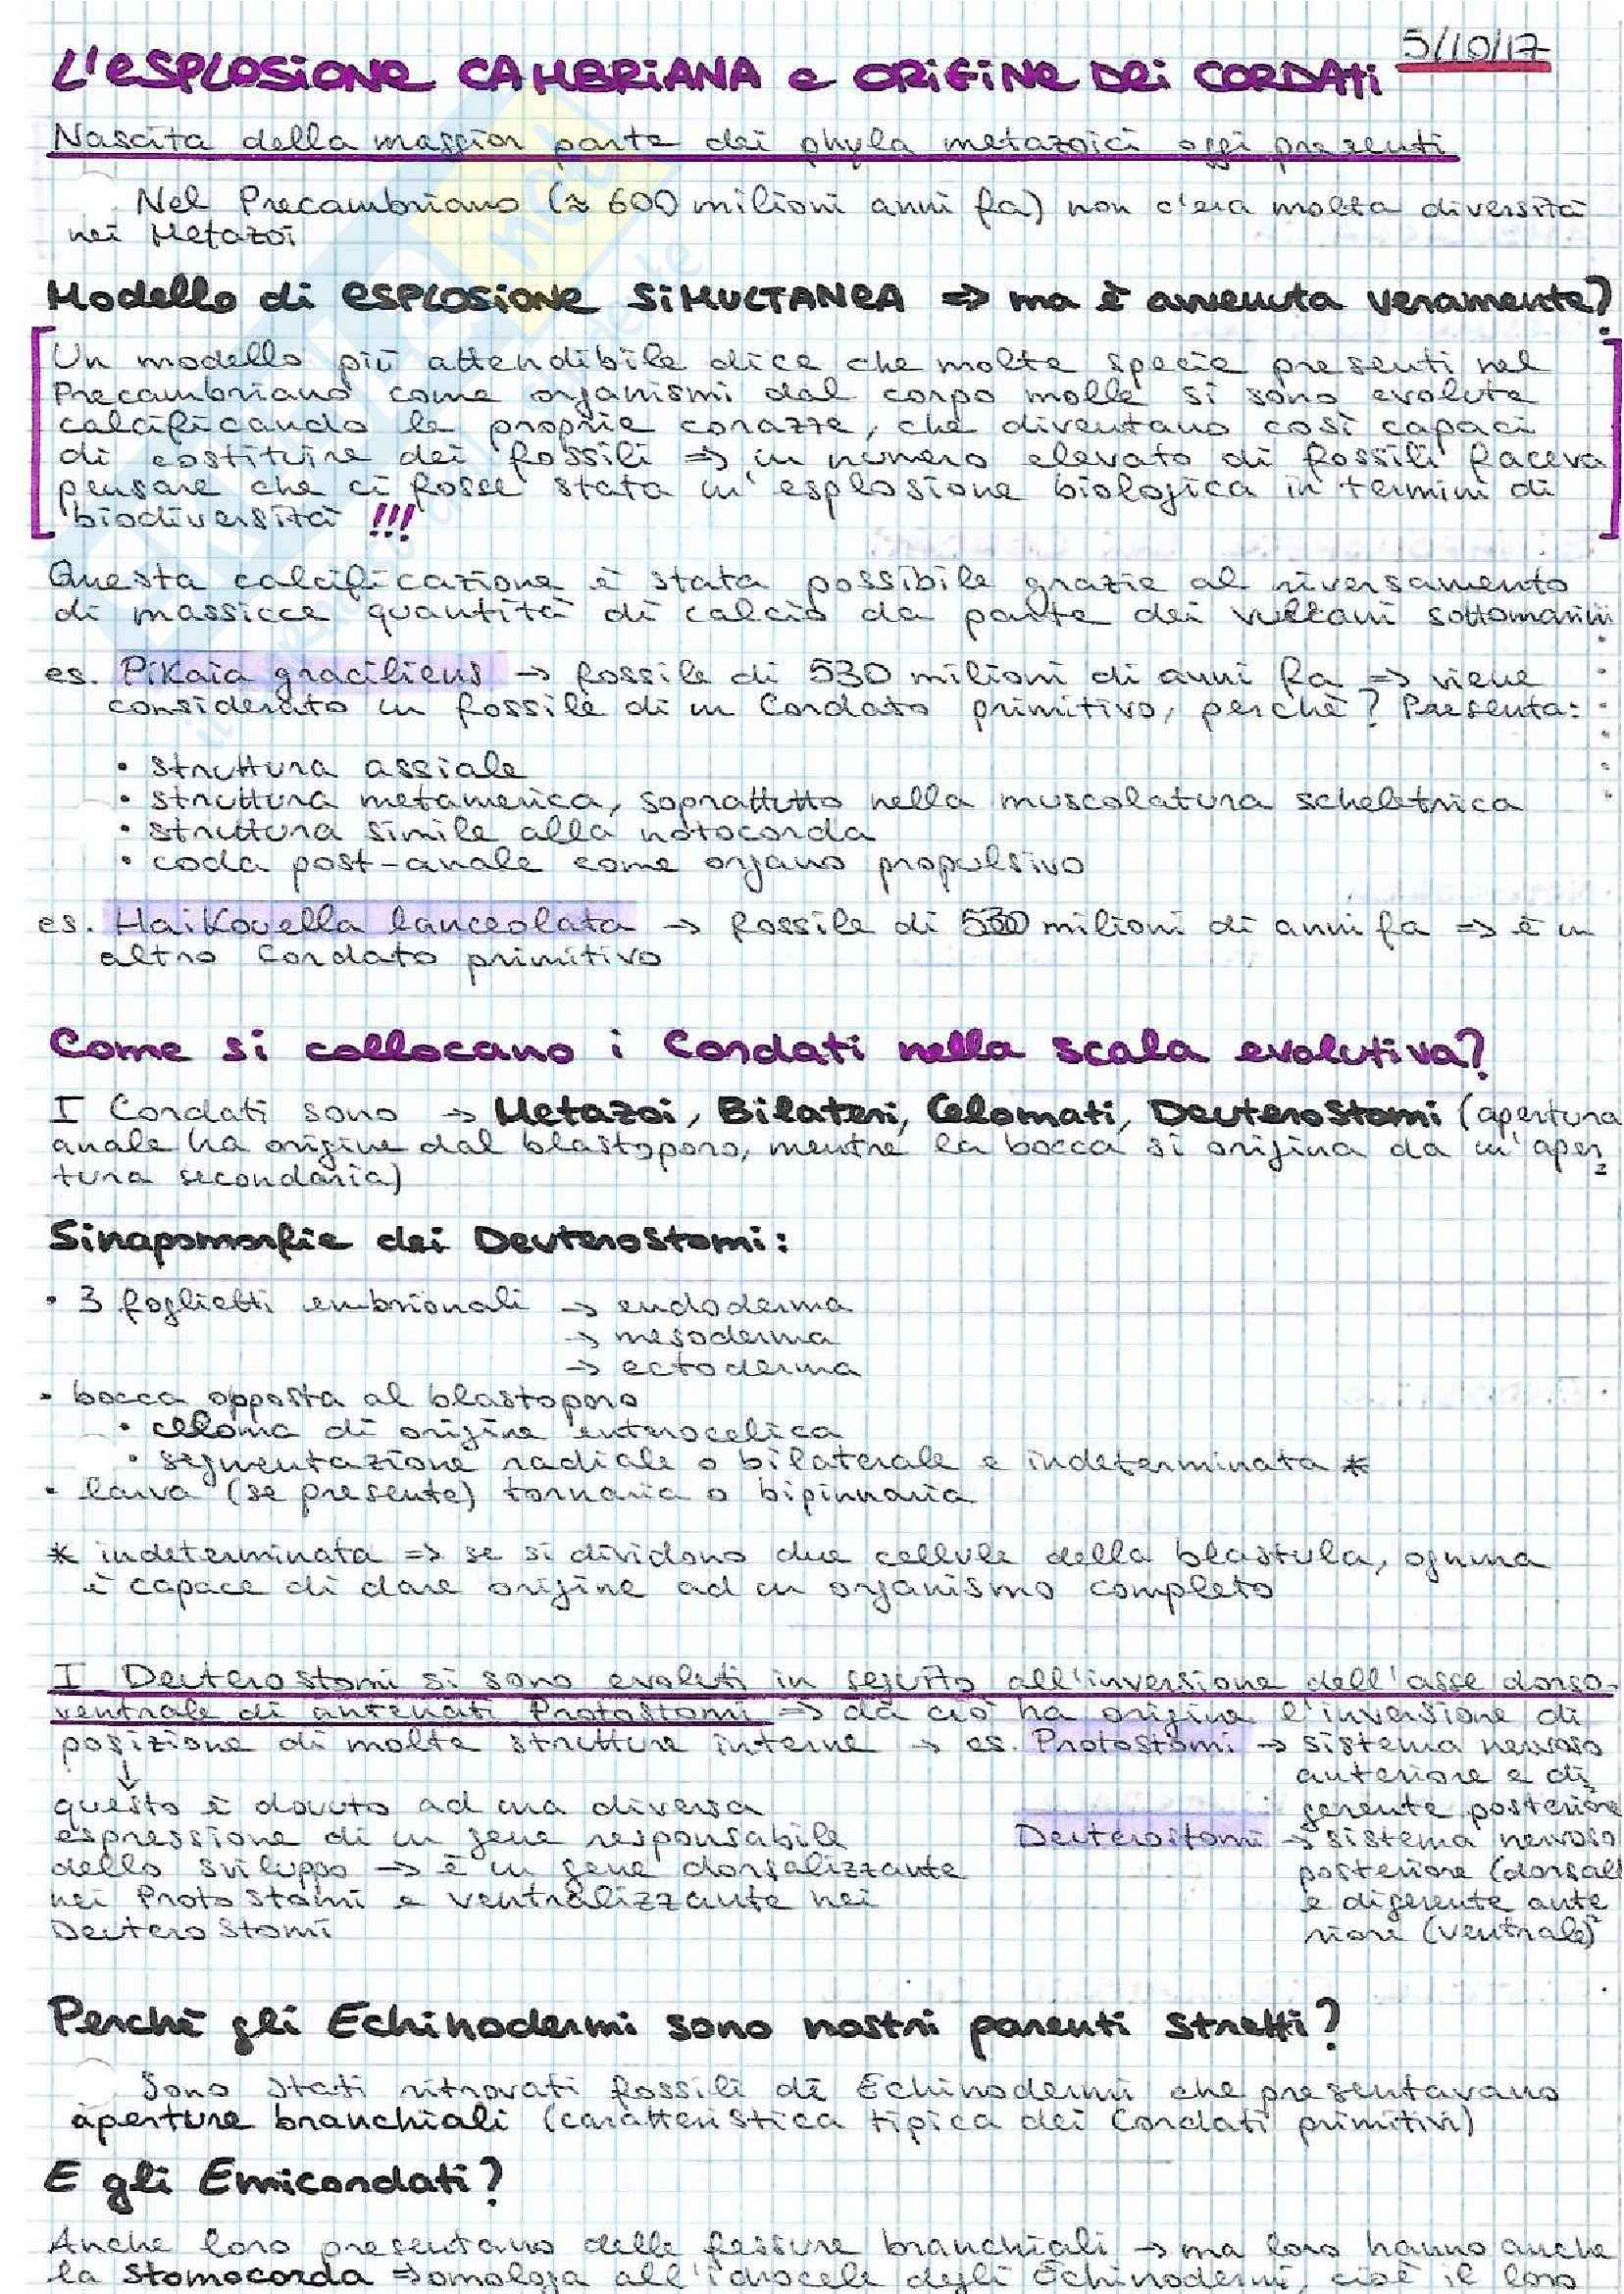 5/10/17
L'ESPLOSIONE CAMBRIANA e ORIGINE DEI CORDATI
Nascita della maggior parte dei phyla metazoici oggi presenti
Nel Precambriano (≈ 600 milioni anni fa) non c'era molta diversità
nei Metazoi
Modello di ESPLOSIONE SIMULTANEA => ma è avvenuta veramente?
Un modello più attendibile dice che molte specie presenti nel
Precambriano come organismi dal corpo molle si sono evolute
calcificando le proprie corazze, che diventano così capaci
di costituire dei fossili => un numero elevato di fossili faceva
pensare che ci fosse stata un'esplosione biologica in termini di
biodiversità !!!
Questa calcificazione è stata possibile grazie al riversamento
di massicce quantità di calcio da parte dei vulcani sottomarini
es. Pikaia graciliens -> fossile di 530 milioni di anni fa => viene
considerato un fossile di un Cordato primitivo, perchè? Presenta:
• struttura assiale
• struttura metamerica, soprattutto nella muscolatura scheletrica
• struttura simile alla notocorda
• coda post-anale come organo propulsivo
es. Haikouella lanceolata -> fossile di 530 milioni di anni fa => è un
altro Cordato primitivo
Come si collocano i Cordati nella scala evolutiva?
I Cordati sono -> Metazoi, Bilateri, Celomati, Deuterostomi (apertura
anale ha origine dal blastoporo, mentre la bocca si origina da un'aper
tura secondaria)
Sinapomorfie dei Deuterostomi:
• 3 foglietti embrionali -> endoderma
-> mesoderma
-> ectoderma
• bocca opposta al blastoporo
• celoma di origine enterocelica
• segmentazione radiale o bilaterale e indeterminata *
• larva (se presente) tornaria o bipinnaria
* indeterminata => se si dividono due cellule della blastula, ognuna
è capace di dare origine ad un organismo completo
I Deuterostomi si sono evoluti in seguito all'inversione dell'asse dorso-
ventrale di antenati Protostomi => da ciò ha origine l'inversione di
posizione di molte strutture interne -> es. Protostomi -> sistema nervoso
anteriore e di
gerente posteriore
↓
questo è dovuto ad una diversa
espressione di un gene responsabile
dello sviluppo -> è un gene dorsalizzante
nei Protostomi e ventralizzante nei
Deuterostomi
Deuterostomi -> sistema nervoso
posteriore (dorsale
e digerente ante
riore (ventrale)
Perchè gli Echinodermi sono nostri parenti stretti?
Sono stati ritrovati fossili di Echinodermi che presentavano
aperture branchiali (caratteristica tipica dei Cordati primitivi)
E gli Emicordati?
Anche loro presentano delle fessure branchiali -> ma loro hanno anche
la stomocorda => omologa all'idrocele degli Echinodermi, cioè il loro